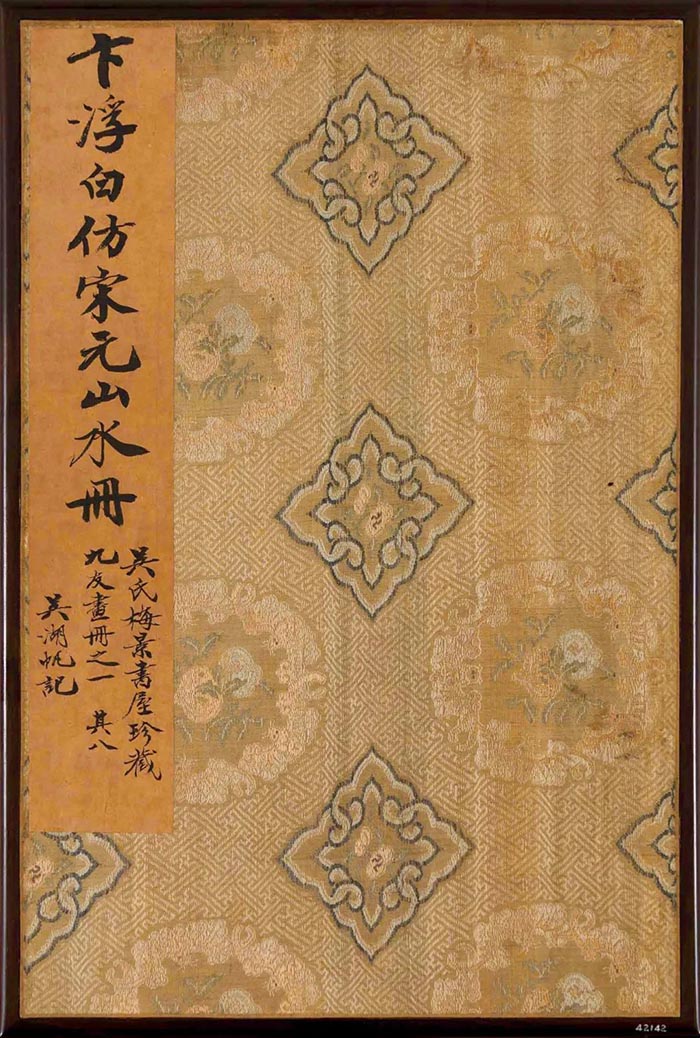 卞浮白仿宋元山水冊
吳氏梅景書屋珍藏
九友畫冊之一 其八
吳湖帆記
42142